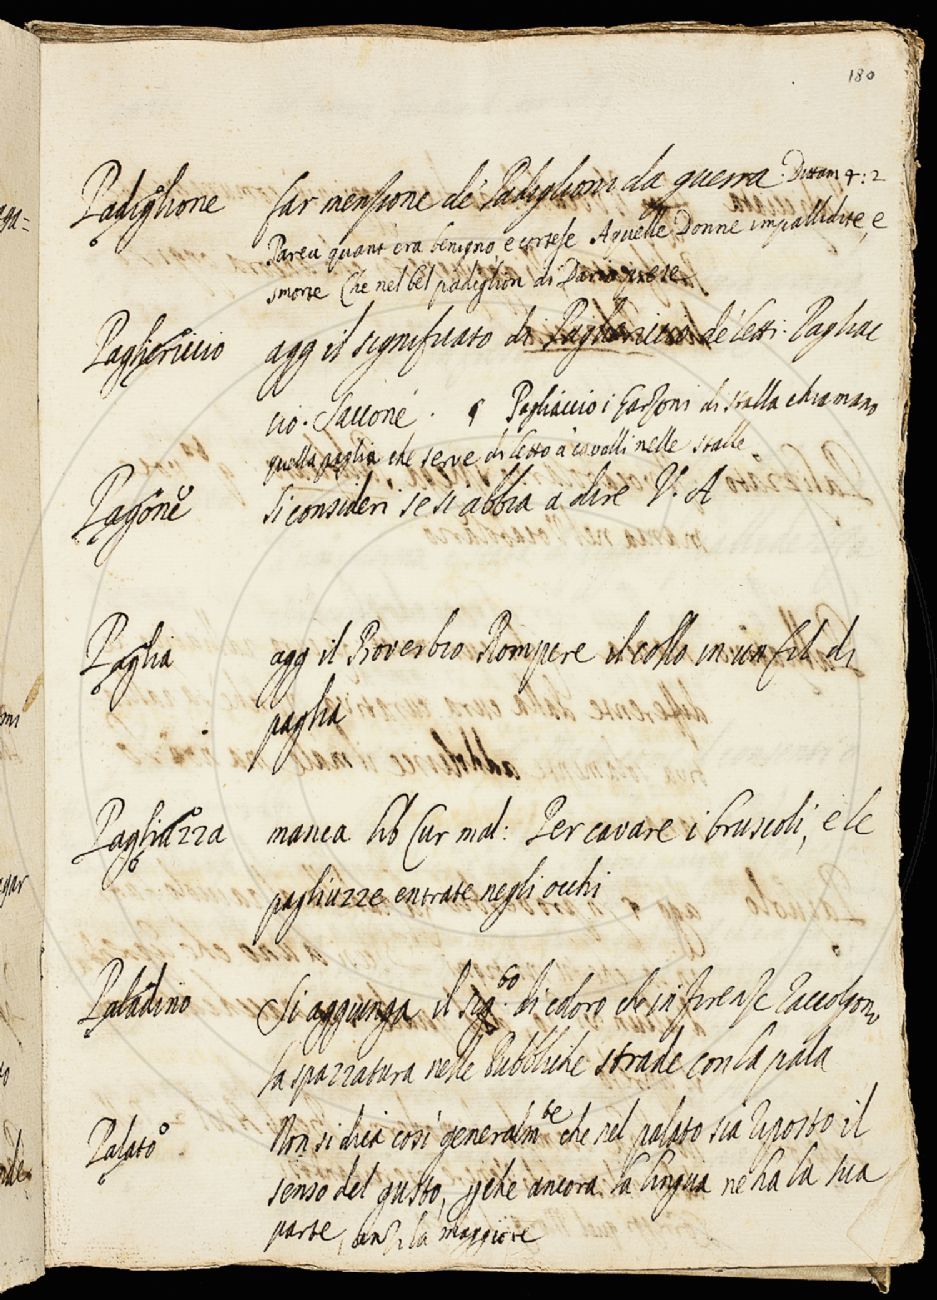 180
Padiglione far menzione de' Padiglioni da guerra. Dittam 4: 2
Parea quant' era benigno e cortese A quelle Donne impallidite, e
smorte Che nel bel padiglion di Dario
Pagliericcio agg il significato di de' letti. Pagliac
cio. Saccone. Pagliaccio i Garzoni di stalla chiamano
quella paglia che serve di letto a' cavalli nelle stalle
Pagone si consideri se si abbia a dire V. A
Paglia agg il Proverbio Rompere il collo in un fil di
paglia
Pagliuzza manca lib Cur mal: Per cavare i bruscoli, e le
pagliuzze entrate negli occhi
Paladino Si aggiunga il sig.to di coloro che in firenze raccolgono
la spazzatura nelle Pubbliche strade con la pala
Palato Non si dica così generalmte che nel palato sia riposto il
senso del gusto, perche ancora la lingua ne ha la sua
parte, anzi la maggiore